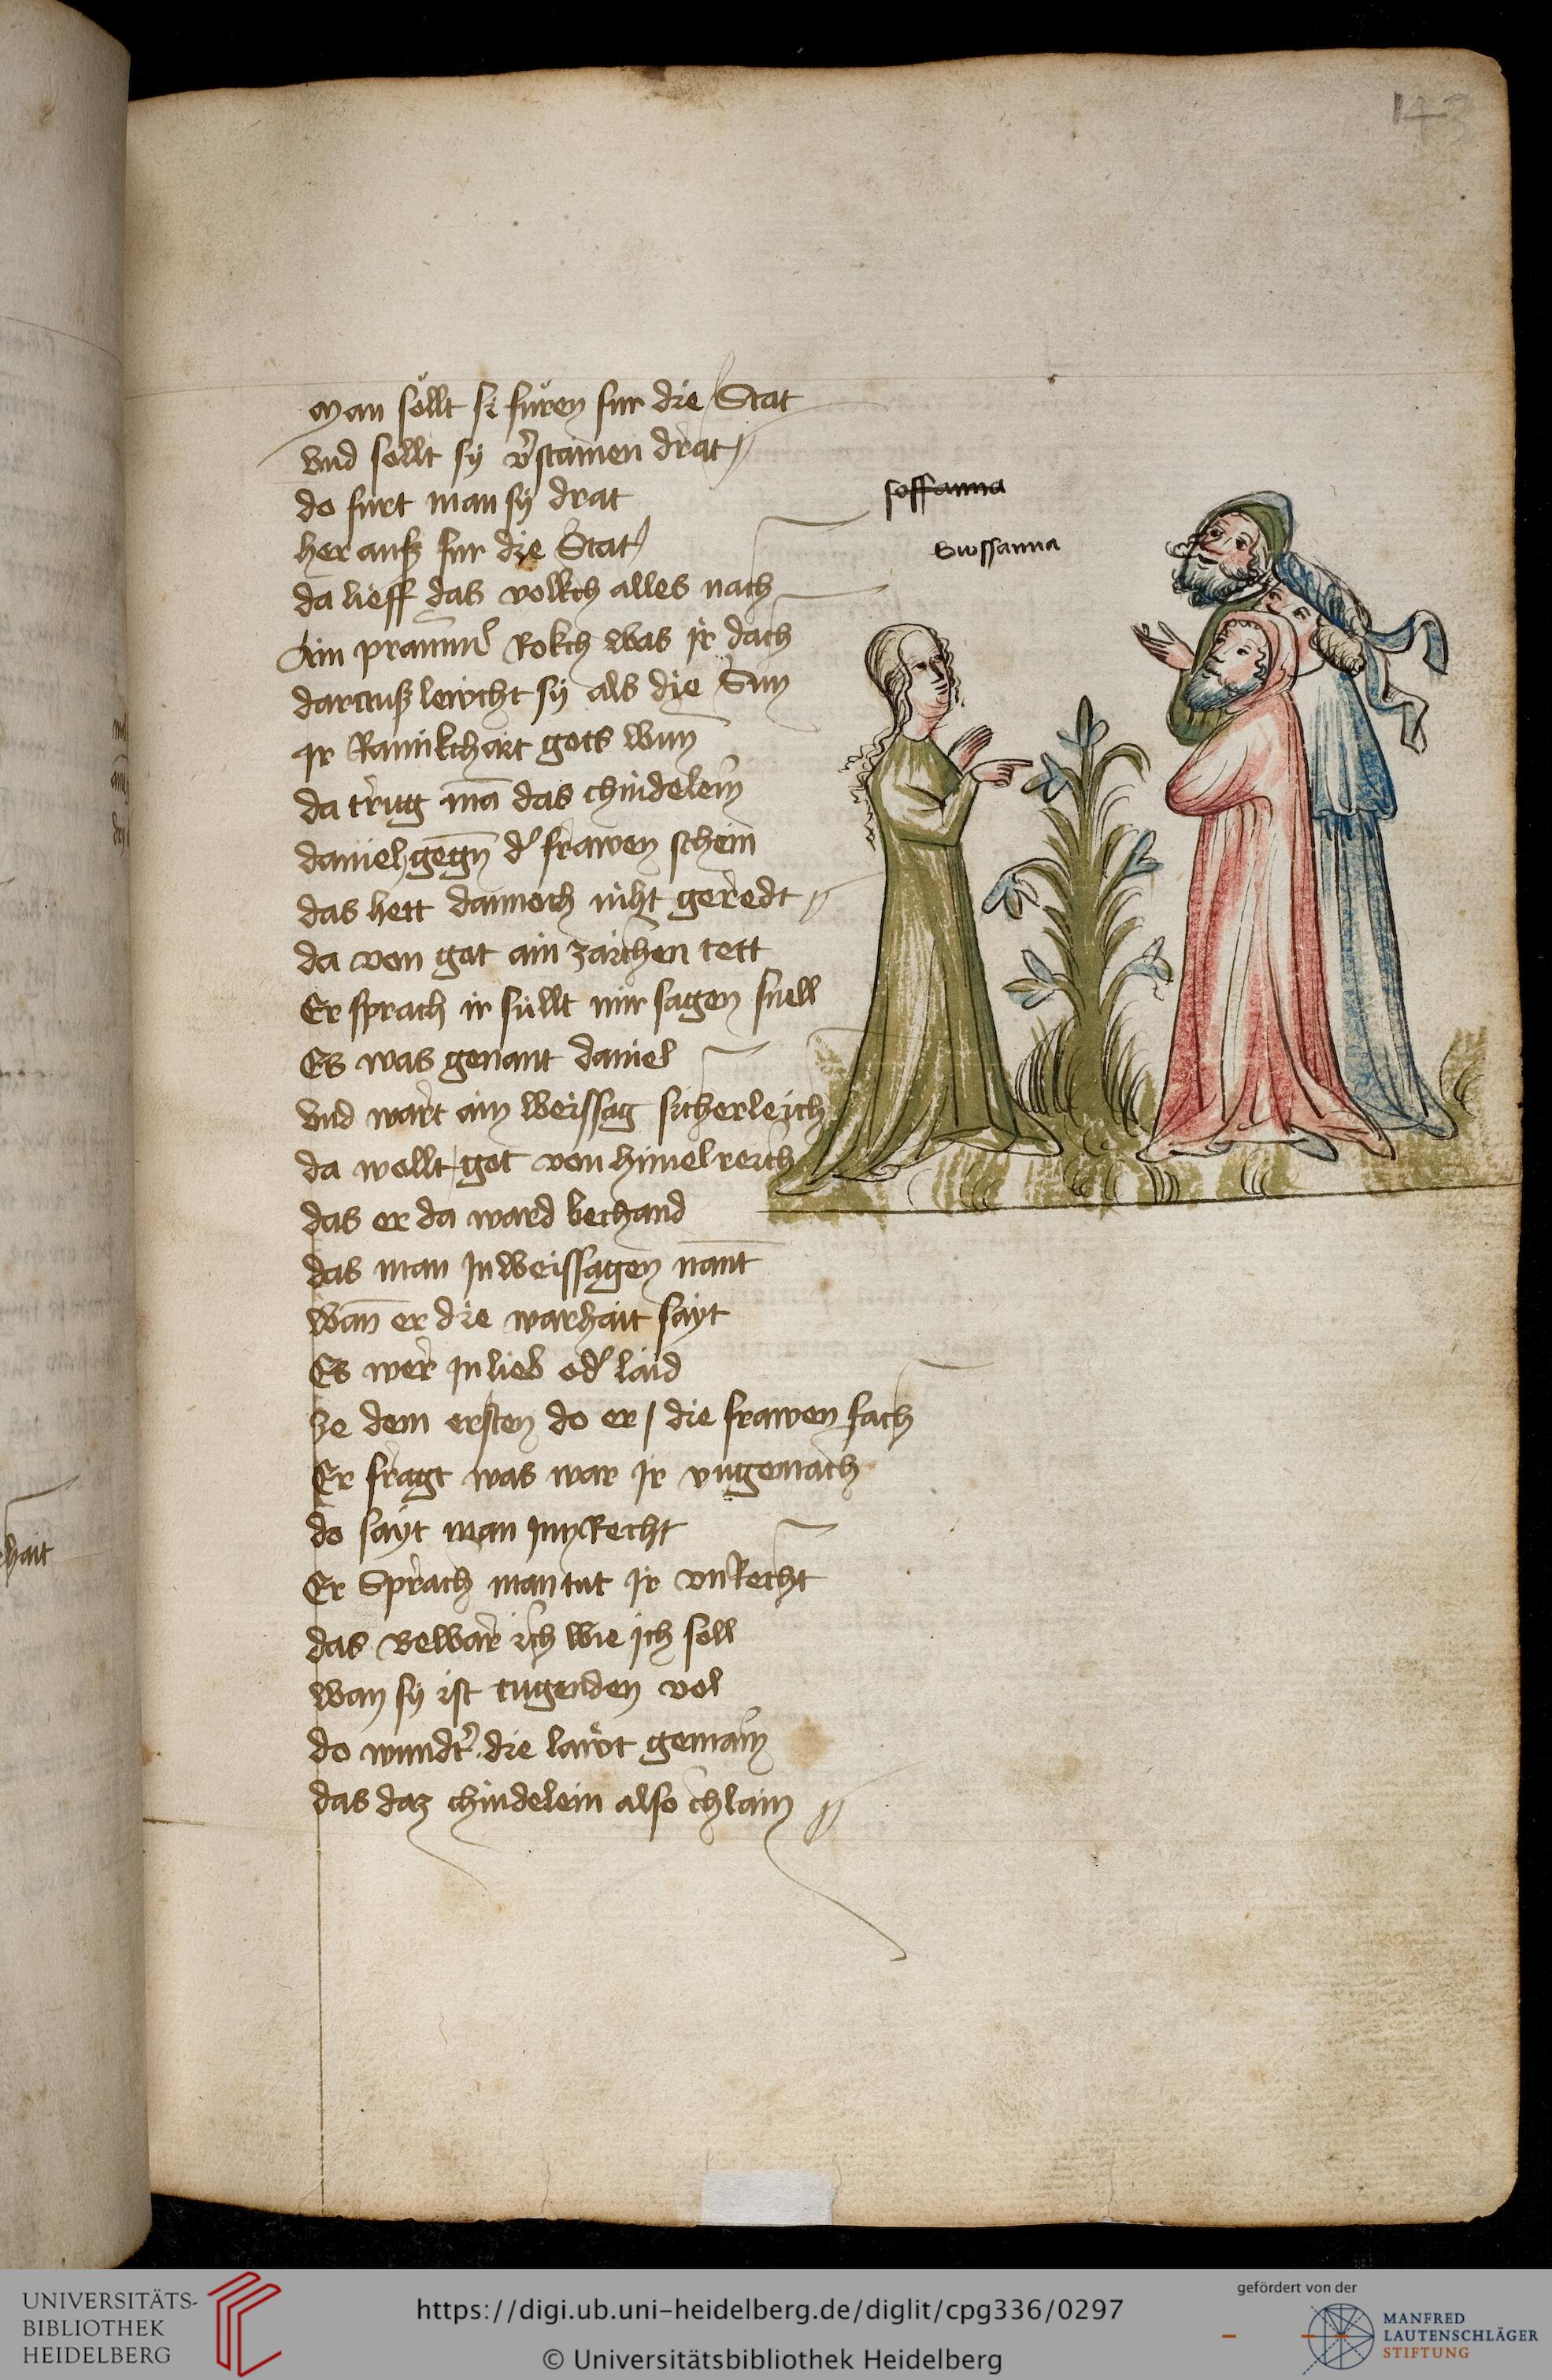 143
Man söllt si füren fur die Stat
Vnd sollt sy v̉stainen drat
do furt man sy drat
her ausz fur die Stat
da lieff das volkch alles nach
Ain prawnn̉ Rokch was jr dach
darausz lewcht sy als die Sun
jr Rainikchait gots wun
da trug mā das chindelein
daniel gegn̄ d̉ frawen schein
das hett dannoch niht geredt
da von got ain zaichen tett
Er sprach ir sullt mir sagen snell
Es was genant daniel
Vnd wart ain weissag sicherleich
da wollt got von himelreich
das er da ward bechand
das man jn weissagen nant
Wan̄ er die warhait sayt
Es wer jn lieb od̉ laid
ze dem ersten do er die frawen sach
Er fragt was war jr vngemach
do sayt man jm Recht
Er Sprach man tut jr vnRecht
das Bewar ich wie jch soll
Wan sy ist tugenden vol
do wundt̉ die läwt gemain
das daz chindelein also chlain
soffanna
Swssanna
hait
UNIVERSITÄTS-
BIBLIOTHEK
HEIDELBERG
https://digi.ub.uni-heidelberg.de/diglit/cpg336/0297
© Universitätsbibliothek Heidelberg
gefördert von der
MANFRED
LAUTENSCHLÄGER
STIFTUNG